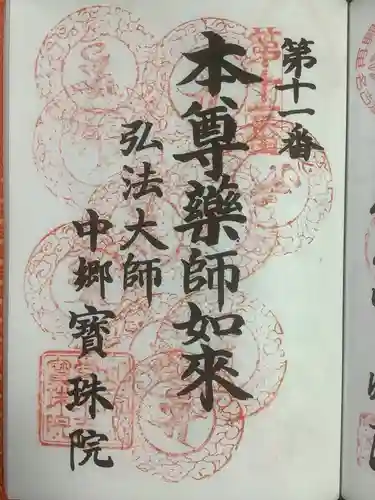 第十一番
本尊藥師如來
弘法大師
中郷寶珠院